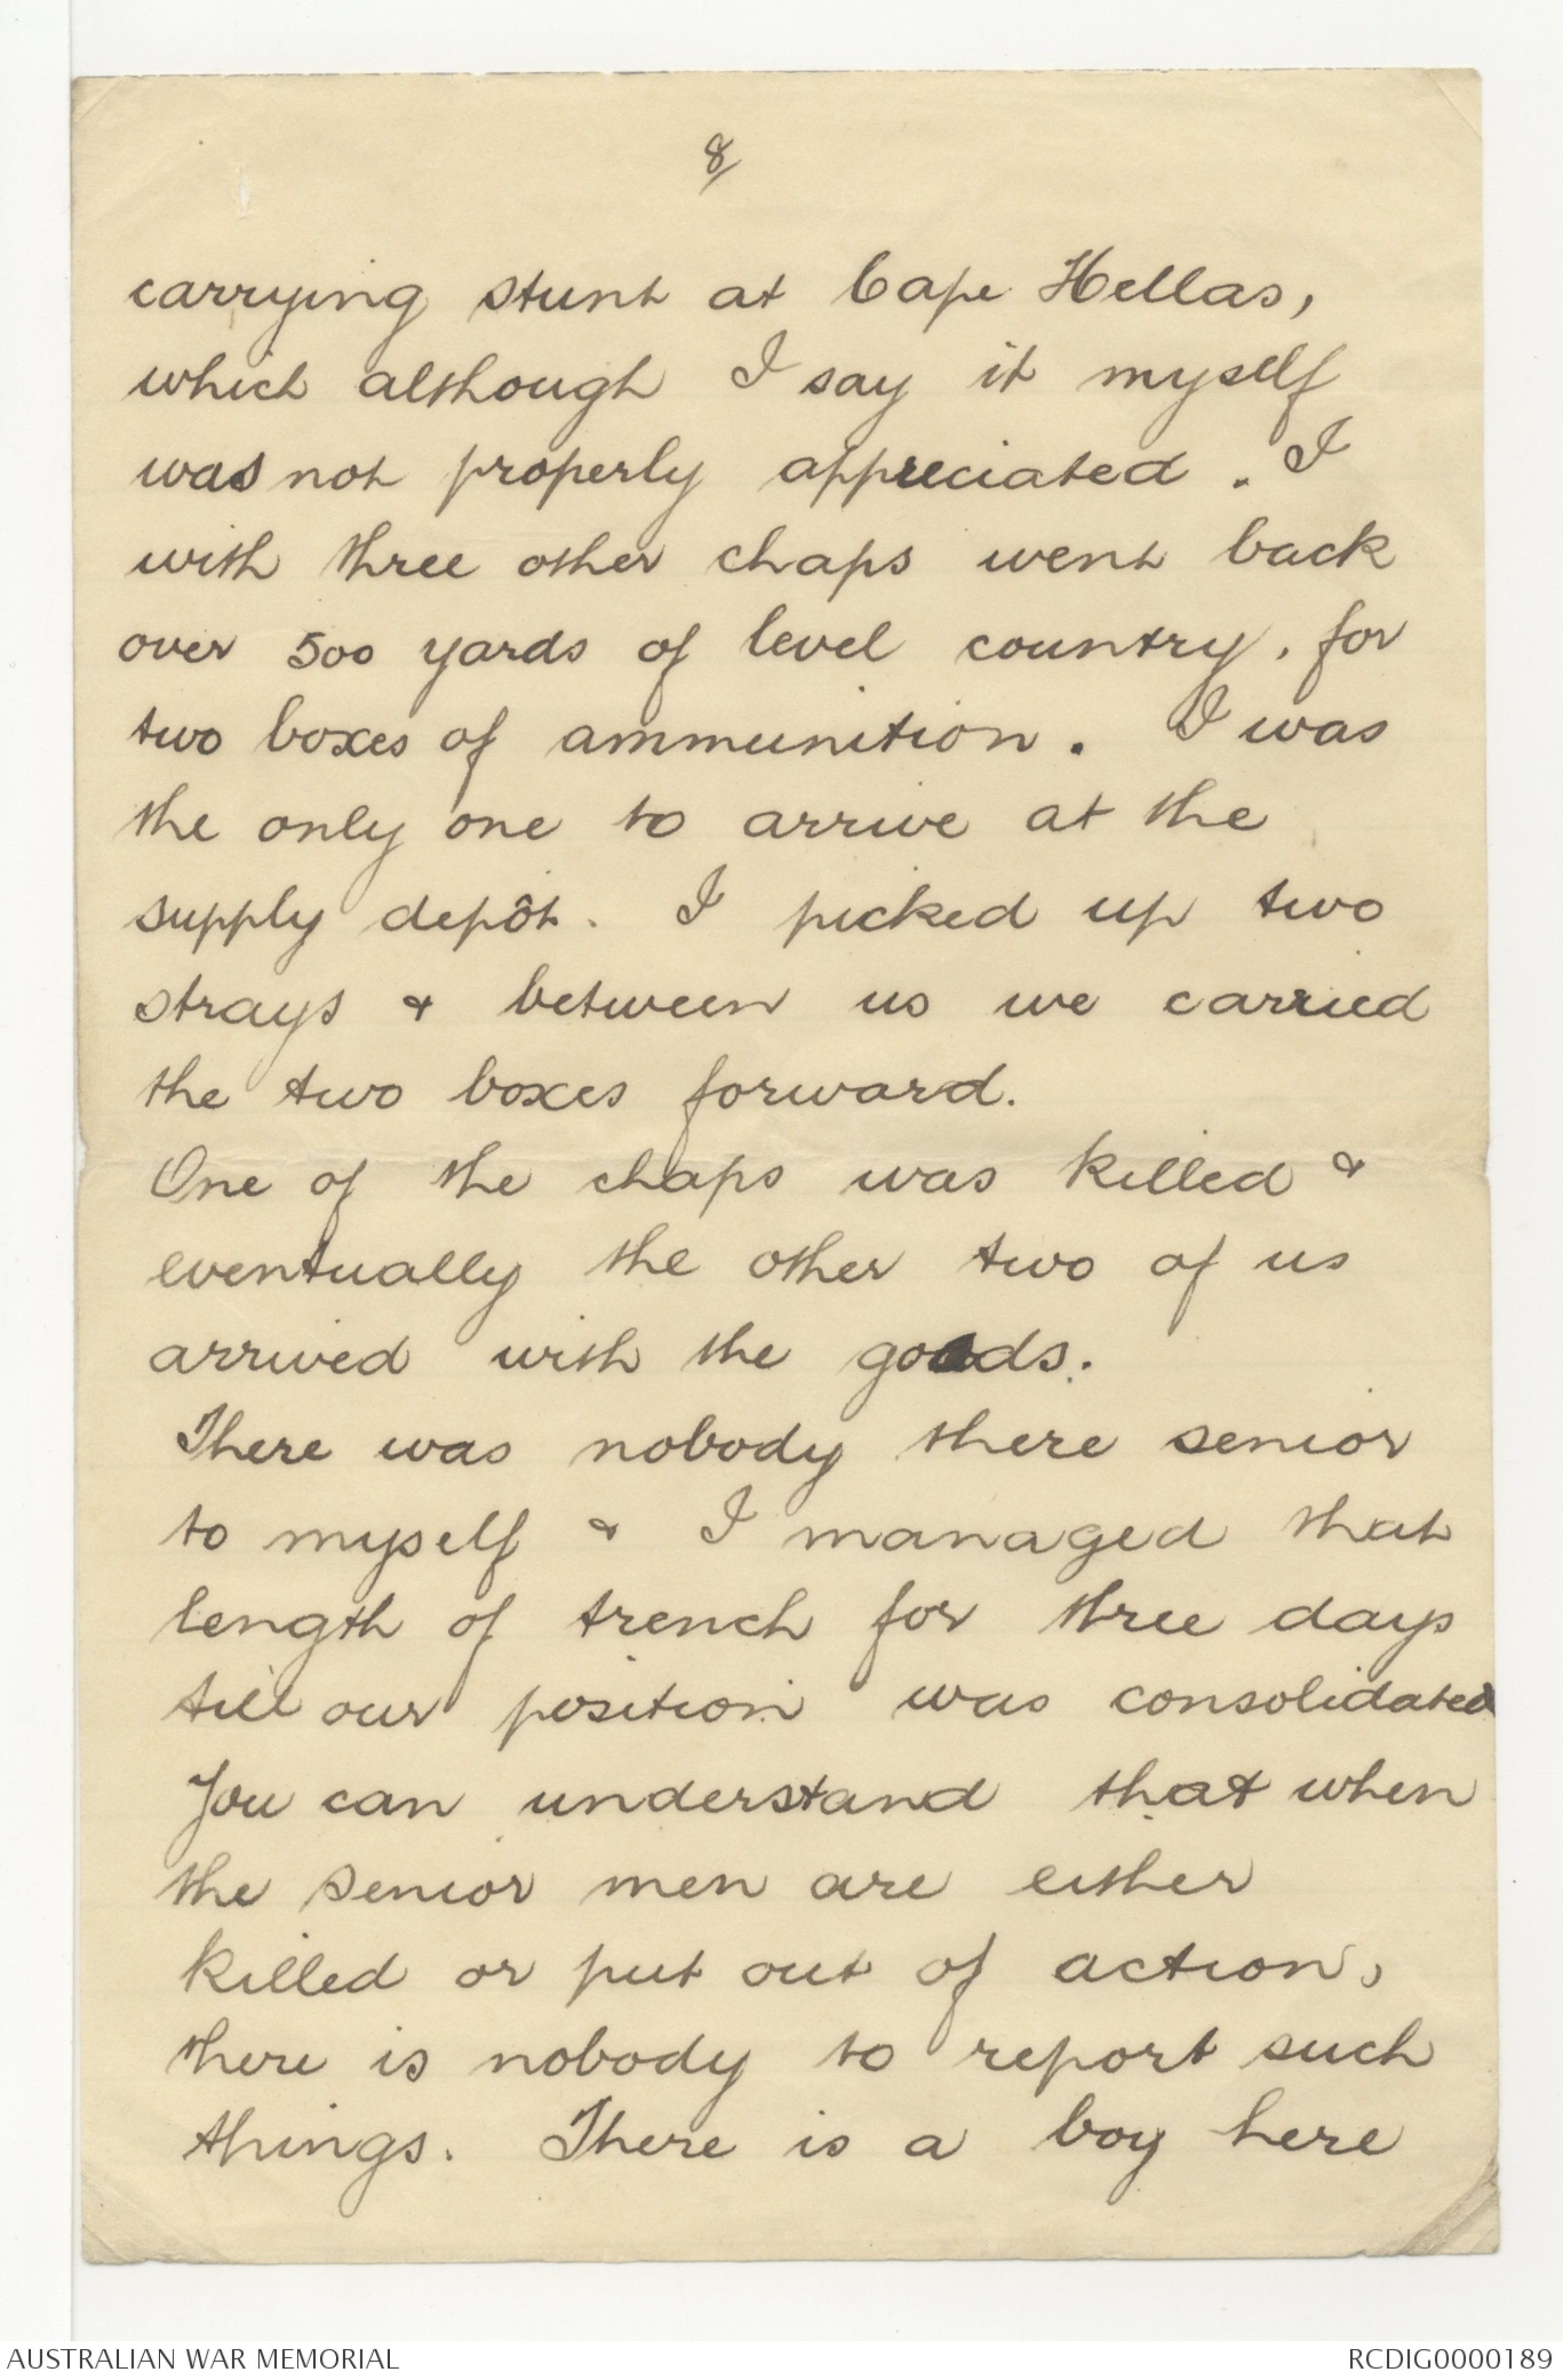 8/
carrying stunt at Cape Hellas,
which although I say it myself
was not properly appreciated. I
with three other chaps went back
over 500 yards of level country, for
two boxes of ammunition. I was
the only one to arrive at the
supply depôt. I picked up two
strays & between us we carried
the two boxes forward.
One of the chaps was killed &
eventually the other two of us
arrived with the goods.
There was nobody there senior
to myself & I managed that
length of trench for three days
till our position was consolidated
You can understand that when
the senior men are either
killed or put out of action,
there is nobody to report such
things. There is a boy here
AUSTRALIAN WAR MEMORIAL
RCDIG0000189